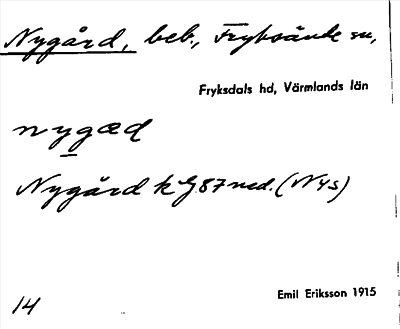 Nygård, beb., Fryksände sn,
Fryksdals hd, Värmlands län
nygæd
Nygård k G87ned. (Nys)
Emil Eriksson 1915
14